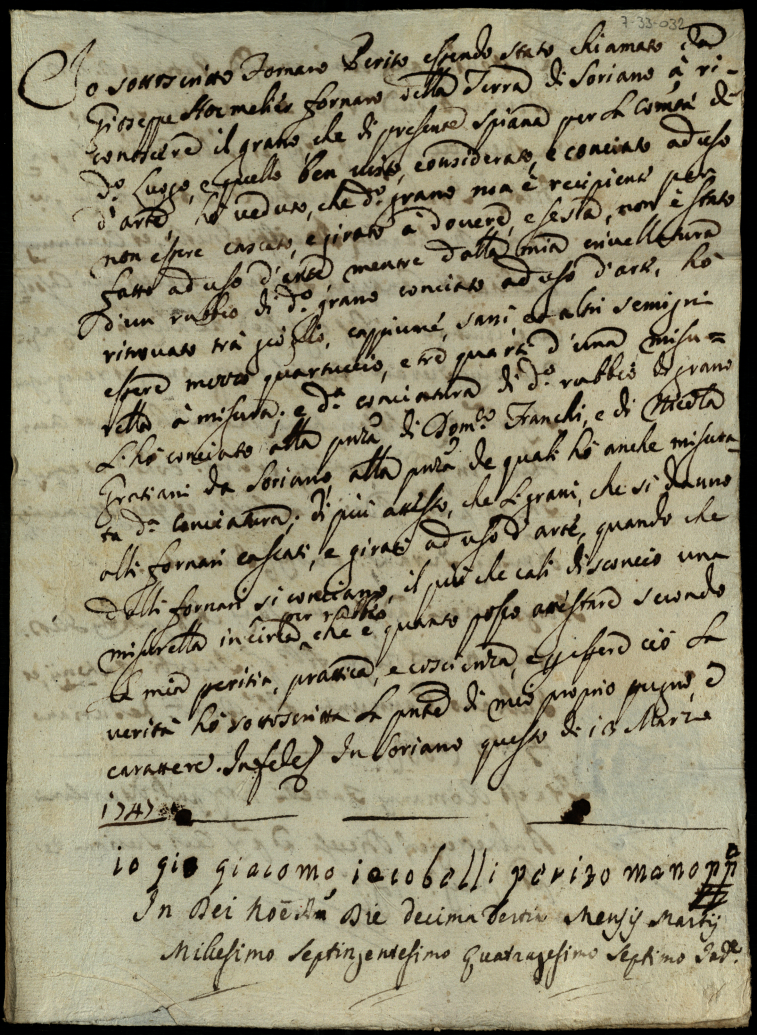 7-33-032
Io sottoscritto Fornaro Perito essendo stato chiamato da
Gioseppe fornaro della Terra di Soriano à ri-
conoscere il grano che di presente spiana per La Comtà dè
dº Luogo, e quello ben visto, considerato, e conciato ad uso
d'arte, hò veduto, che dº grano non è recipiente per
non essere cascato, e girato à dovere, e sesta, non è stato
fatto ad uso d'arte mentre dalla mia crivellatura
d'un rubbio di dº grano conciato ad uso d'arte, hò
ritrovato trà gioglio, cappiume, sassi, ed altri semigni
essere mezzo quartuccio, e trè quarti d'una misu=
retta à misura; e dª conciatura di dº rubbio di grano
L'hò conciato alla pnza di Domco Franchi, e di Nicola
Gratiani da Soriano, alla pnza de quali hò anche misura=
ta dª conciatura; di più attesto, che Li grani, che si danno
alli fornari cascati, e girati ad uso d'arte, quando che
dalli fornari si conciano, il più che cali di sconcio una
misuretta incirca per rubbio, che è quanto posso attestare secondo
La mia peritia, prattica, e coscienza, e per essere ciò La
verità hò sottoscritta La pnte di mio proprio pugno, e
carattere. In fede In Soriano questo dì 13 Marzo
1747
io gio giacomo iacobelli perizo mano pp
In Dei Noe Die decima Tertia Mensis Martij
Millesimo Septingentesimo Quatragesimo Septimo Inde